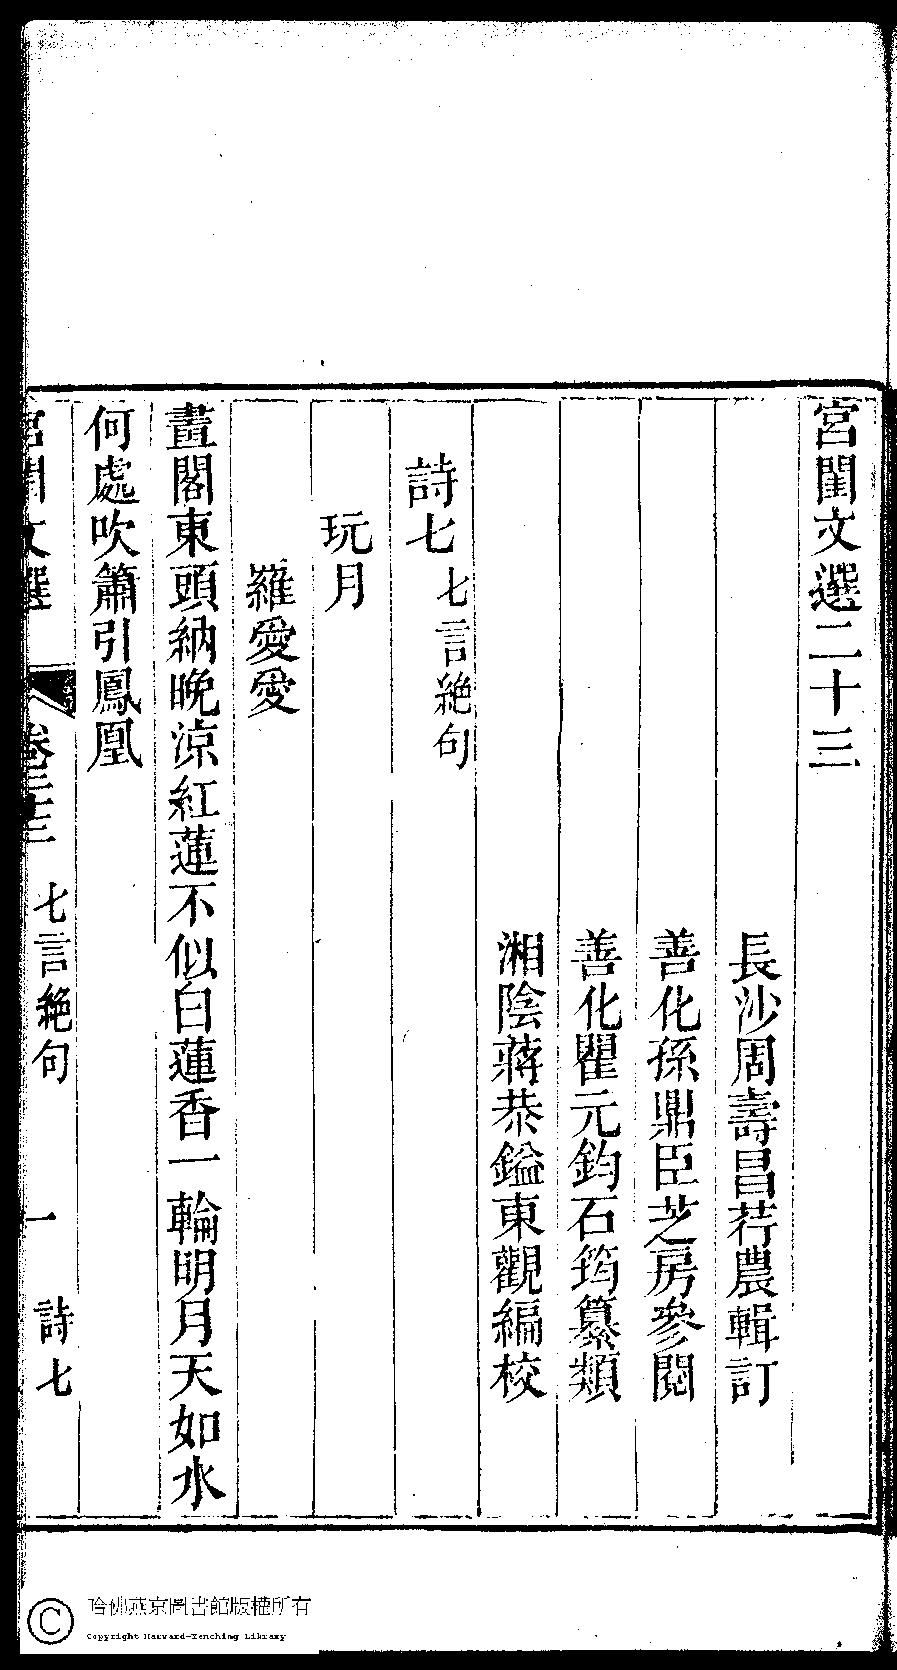 宮閨文選二十三
長沙周壽昌荇農輯訂
善化孫鼎臣芝房參閱
善化瞿元鈞石筠纂類
湘陰蔣恭鎰東觀編校
詩七 七言絶句
玩月
羅愛愛
畫閣東頭納晚涼紅蓮不似白蓮香一輪明月天如水
何處吹簫引鳳凰
宮閨文選 卷二十三 七言絶句 一 詩七
哈佛燕京圖書館版權所有
Copyright Harvard-Yenching Library